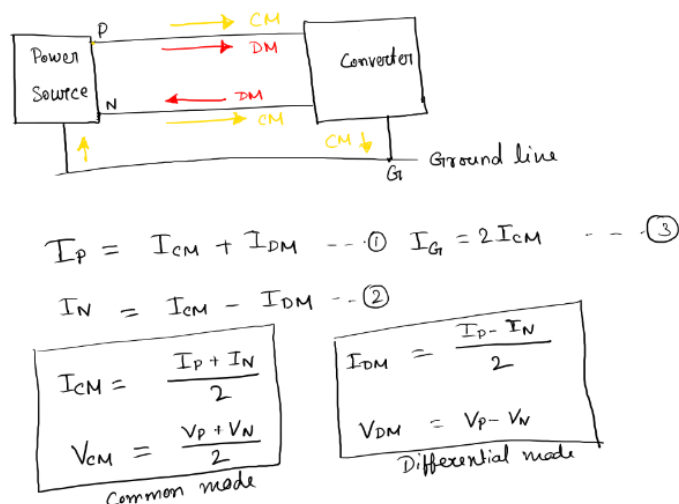 P CM
DM
Power Source
Converter
N DM
CM
CM
G Ground line
I_P = I_CM + I_DM --- ① I_G = 2I_CM --- ③
I_N = I_CM - I_DM -- ②
I_CM = (I_P + I_N) / 2
V_CM = (V_P + V_N) / 2
Common mode
I_DM = (I_P - I_N) / 2
V_DM = V_P - V_N
Differential mode